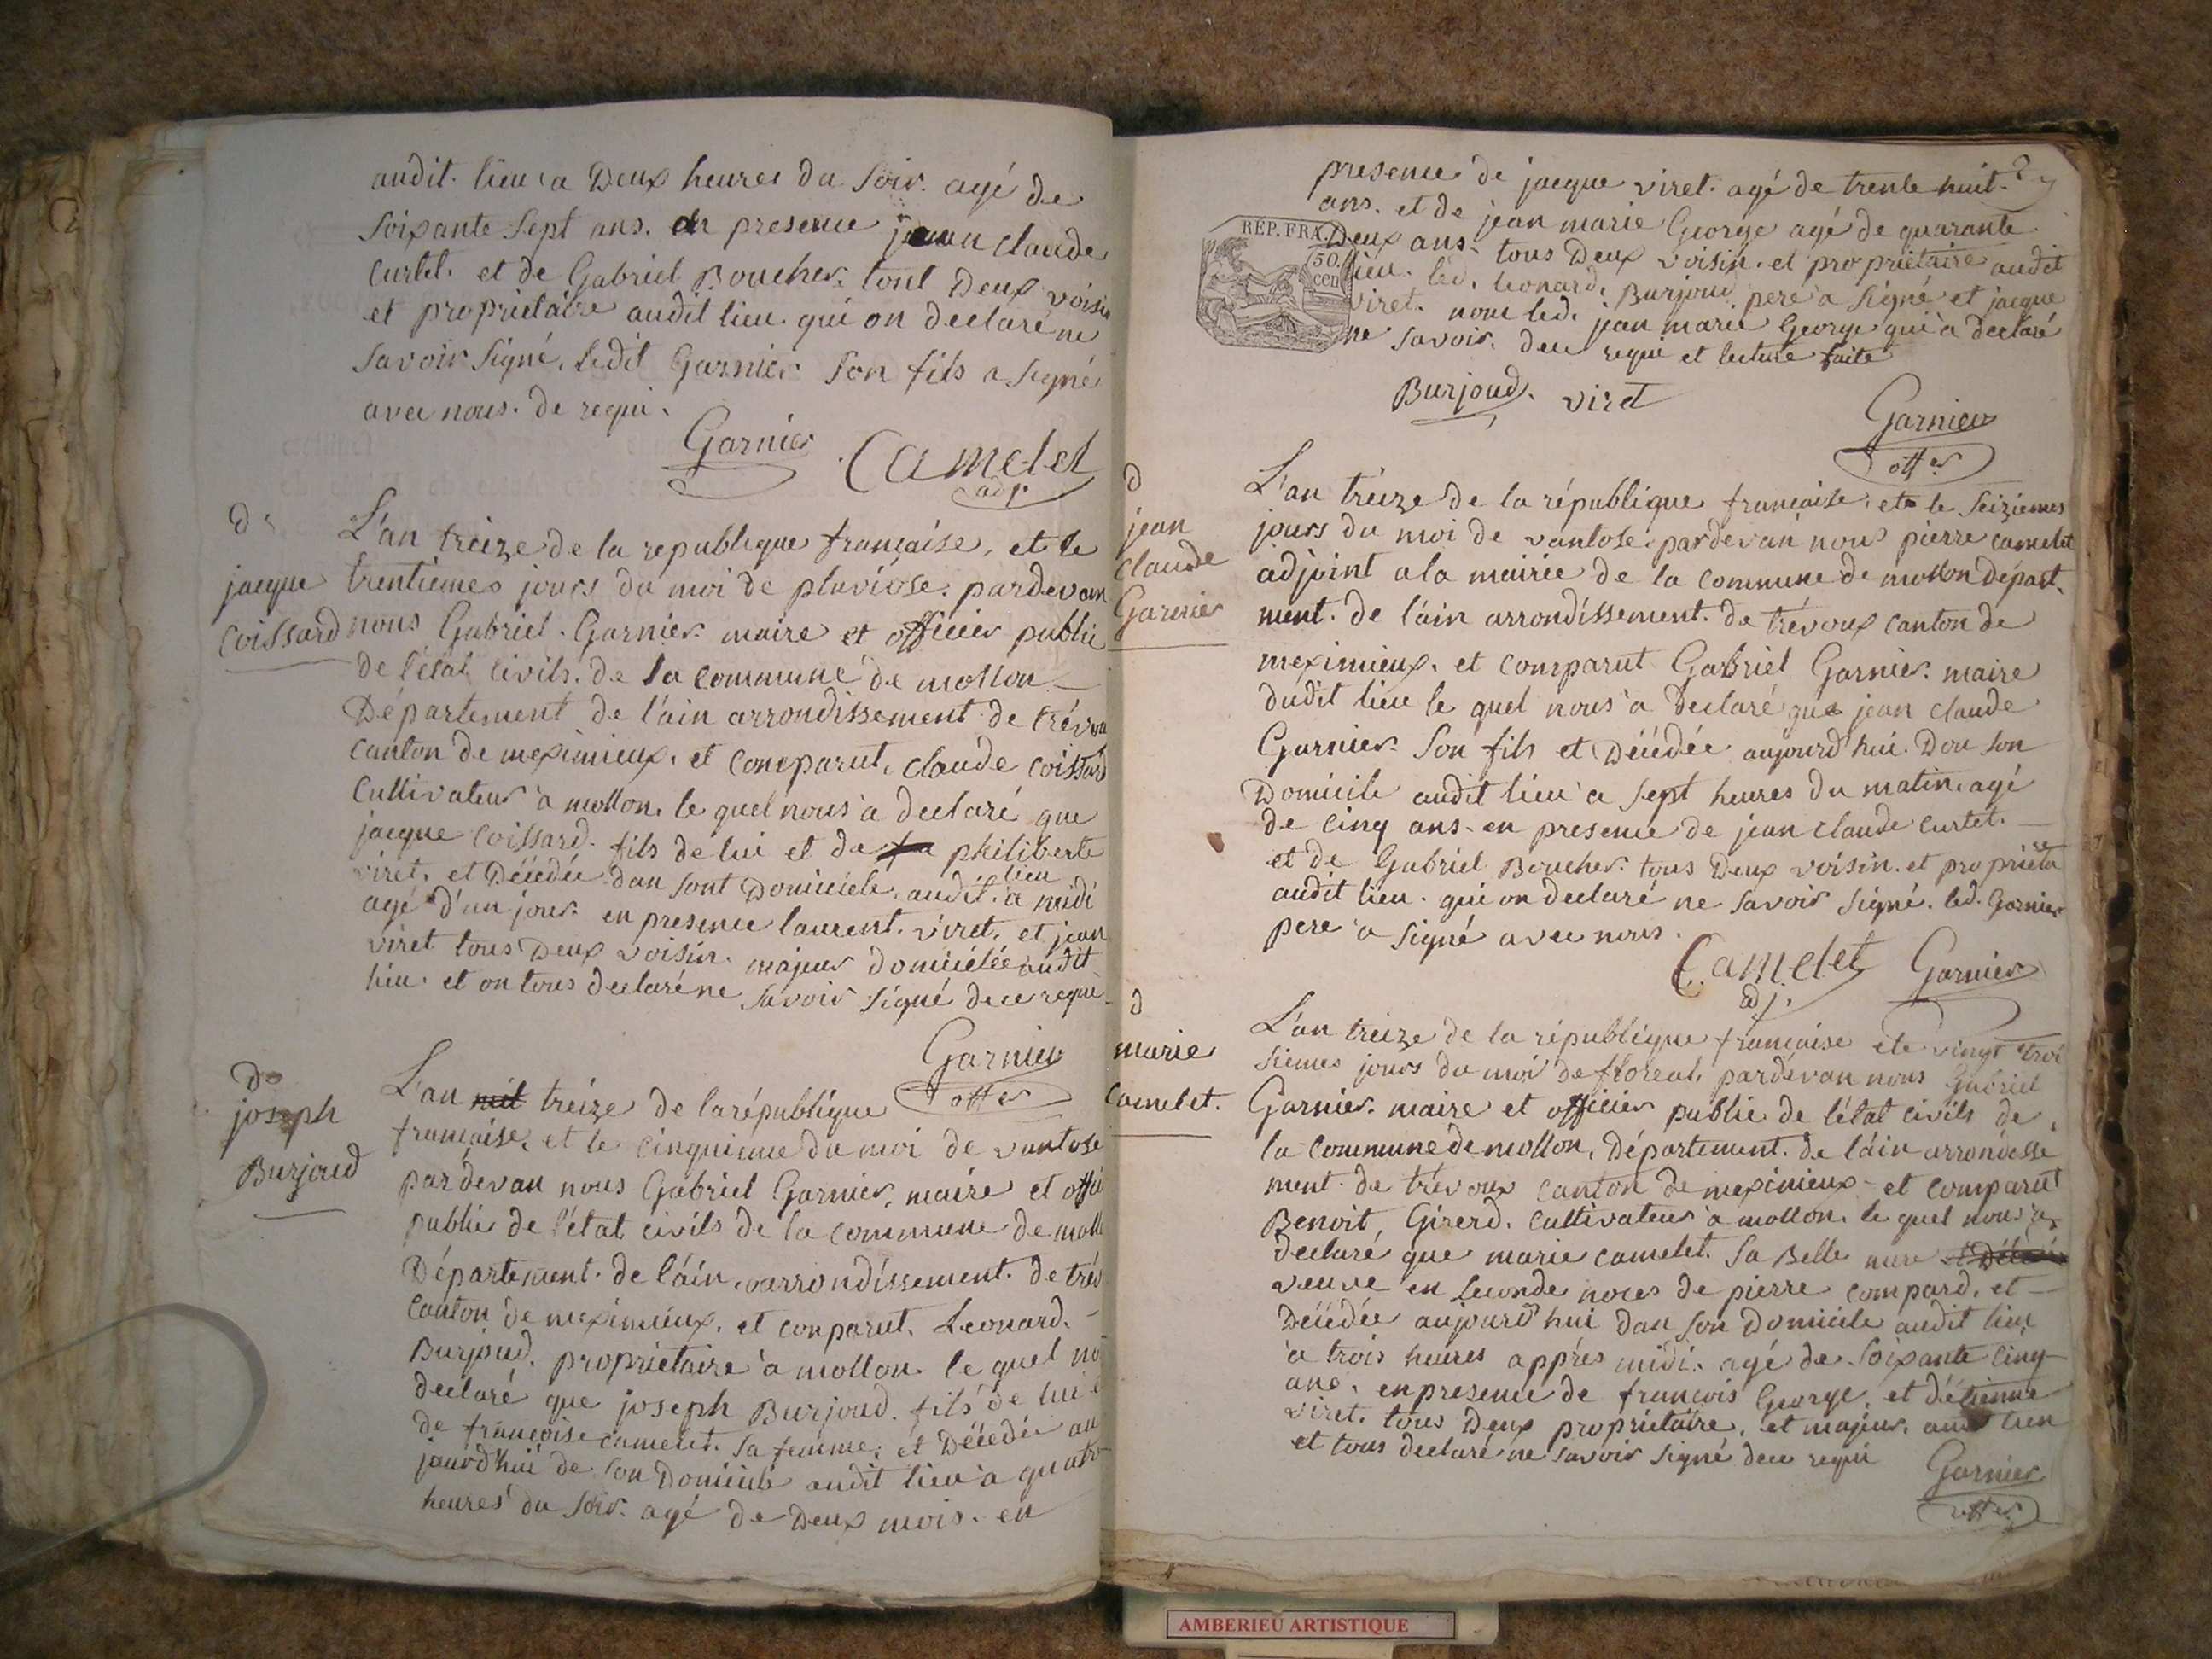 audit. lieu a Deux heures du Soir. agé de
Soixante Sept ans. en presence jean claude
Curtet. et de Gabriel Boucher. tout Deux voisin
et proprietaire audit lieu. qui on declaré ne
Savoir Signé. ledit Garnier Son fils a Signé
avec nous. de requi.
Garnier Camelet
adj.
D
jacque
Coissard
L'an treize de la republique française, et le
trentiemes jours du moi de pluviose. pardevan
nous Gabriel. Garnier maire et officier public
de l'état civils. de la commune de mollon
Département de l'ain arrondissement de trévou
canton de meximieux. et comparut, claude coissard
Cultivateur a mollon. le quel nous a declaré que
jacque Coissard. fils de lui et de philiberte
viret. et Décédée dan sont Domicicle. audit. lieu a midi
agé d'un jour. en presence laurent. viret. et jean
viret tous Deux voisin. majeur domiciélée audit
lieu. et on tous declaré ne Savoir Signé de ce requi
Garnier
offer
Do
joseph
Burjoud
L'an mil treize de la république
française, et le cinquieme du moi de vantose
pardevan nous Gabriel Garnier, maire et offici
public de l'état civils de la commune de moll
Département. de l'ain. arrondissement. de trév
Canton de meximieux. et conparut. Leonard.
Burjoud. proprietaire a mollon. le quel no
declaré que joseph Burjoud. fils de lui e
de françoise camelet. Sa femme. et Décédée au
jourd'hui de Son Domicile audit lieu a quatr
heures du Soir. agé de Deux mois. en
presence de jacque viret. agé de trente huit
ans. et de jean marie George agé de quarante
Deux ans. tous Deux voisin. et proprietaire audit
lieu. led. leonard. Burjoud. pere a Signé et jacque
viret. nom led. jean marie George qui a declaré
ne Savoir. dece requi et lecture faite
RÉP. FRA.
50
cen
Burjoud. viret
Garnier
offer
D
jean
claude
Garnier
L'an treize de la république française, et le Seiziemes
jours du moi de vantose. pardevan nous pierre camelet
adjoint a la mairie de la commune de mollon départ.
ment. de l'ain arrondissement. de trévoux canton de
meximieux. et comparut Gabriel Garnier. maire
dudit lieu le quel nous a declaré que jean claude
Garnier. Son fils et Décédée aujourd'hui. Dou Son
Domicile audit lieu a Sept heures du matin. agé
de cinq ans. en presence de jean claude curtet.
et de Gabriel Boucher. tous Deux voisin. et proprieta
audit lieu. qui on declaré ne Savoir Signé. led. Garnier
pere a Signé avec nous.
Camelet Garnier
adj.
D
marie
Camelet.
L'an treize de la république française et le vingt troi
siemes jours du moi de floreal. pardevan nous Gabriel
Garnier. maire et officier public de l'état civils de
la commune de mollon, Département. de l'ain arrondisse
ment. de trévoux canton de meximieux. et comparut
Benoit, Girerd. Cultivateur a mollon. le quel nous a
declaré que marie camelet. Sa Belle mere
veuve en Seconde noces de pierre compard. et
Décédée aujourd'hui dan Son Domicile audit lieu
a trois heures appres midi. agé de Soixante cinq
ans. en presence de françois George. et d'étienne
viret. tous Deux proprietaire. et majeur. audit lieu
et tous declaré ne Savoir Signé dece requi
Garnier
offer
AMBERIEU ARTISTIQUE